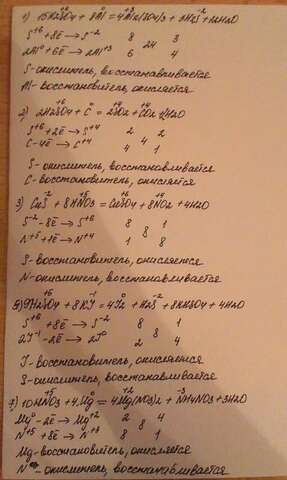 1) 15H2SO4 + 8Al = 4Al2(SO4)3 + 3H2S + 12H2O
S+6 +8ē → S-2 8 3
24
2Al0 +6ē → 2Al+3 6 4
S-окислитель, восстанавливается
Al-восстановитель, окисляется
2) 2H2SO4 + C = 2SO2 + CO2 + 2H2O
S+6 +2ē → S+4 2 2
4
C -4ē → C+4 4 1
S-окислитель, восстанавливается
C-восстановитель, окисляется
3) CuS + 8HNO3 = CuSO4 + 8NO2 + 4H2O
S-2 -8ē → S+6 8 1
8
N+5 +1ē → N+4 1 8
S-восстановитель, окисляется
N-окислитель, восстанавливается
H2SO4 + 8KI = 4I2 + H2S + 8KHSO4 + 4H2O
S+6 +8ē → S-2 8 1
8
2I-1 -2ē → 2I0 2 4
I-восстановитель, окисляется
S-окислитель, восстанавливается
10HNO3 + 4Mg = 4Mg(NO3)2 + NH4NO3 + 3H2O
Mg0 -2ē → Mg+2 2 4
8
N+5 +8ē → N-3 8 1
Mg-восстановитель, окисляется
N-окислитель, восстанавливается